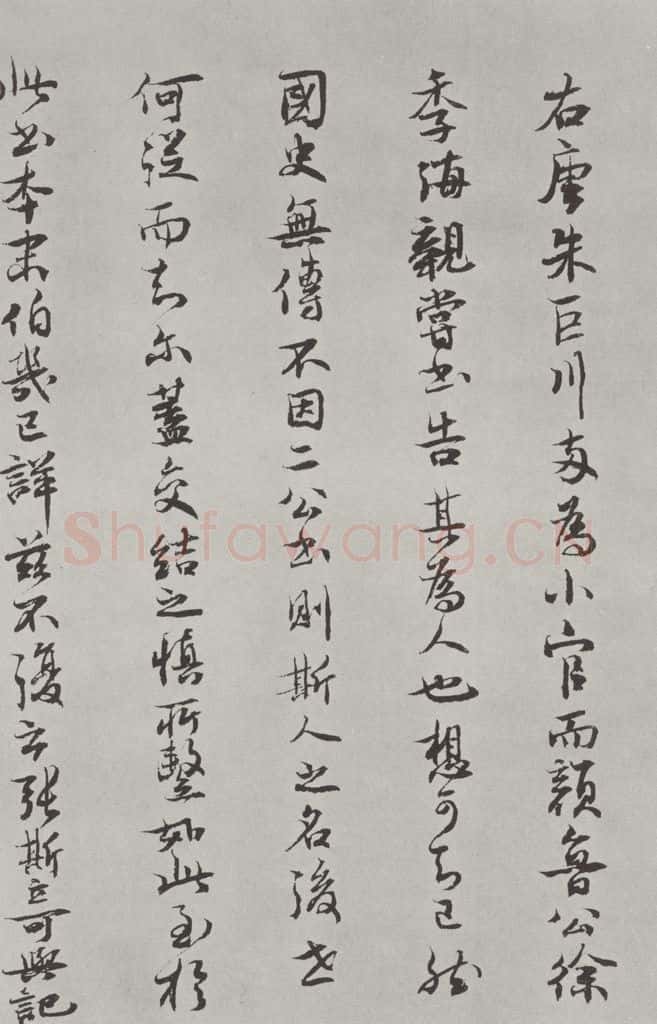 右唐朱巨川両為小官而顔魯公徐
季海親嘗書告其為人也想可知已然
國史無傳不因二公書則斯人之名後世
何從而知尔蓋交結之慎所繫如此至於
此書本末伯幾已詳茲不復云張斯立可與記
Shufawang.CN